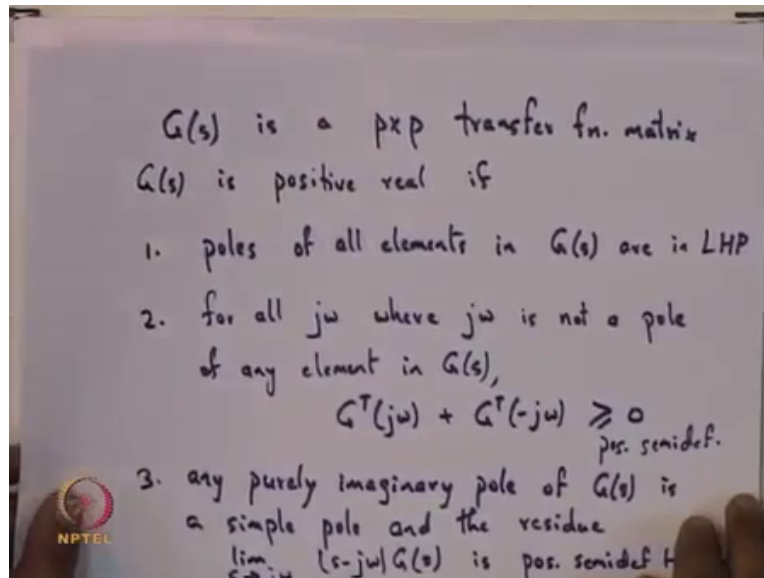 G(s) is a pxp transfer fn. matrix
G(s) is positive real if
1. poles of all elements in G(s) are in LHP
2. for all jω where jω is not a pole
of any element in G(s),
Gᵀ(jω) + Gᵀ(-jω) ⩾ 0
pos. semidef.
3. any purely imaginary pole of G(s) is
a simple pole and the residue
lim (s-jω) G(s) is pos. semidef
s→jω
NPTEL